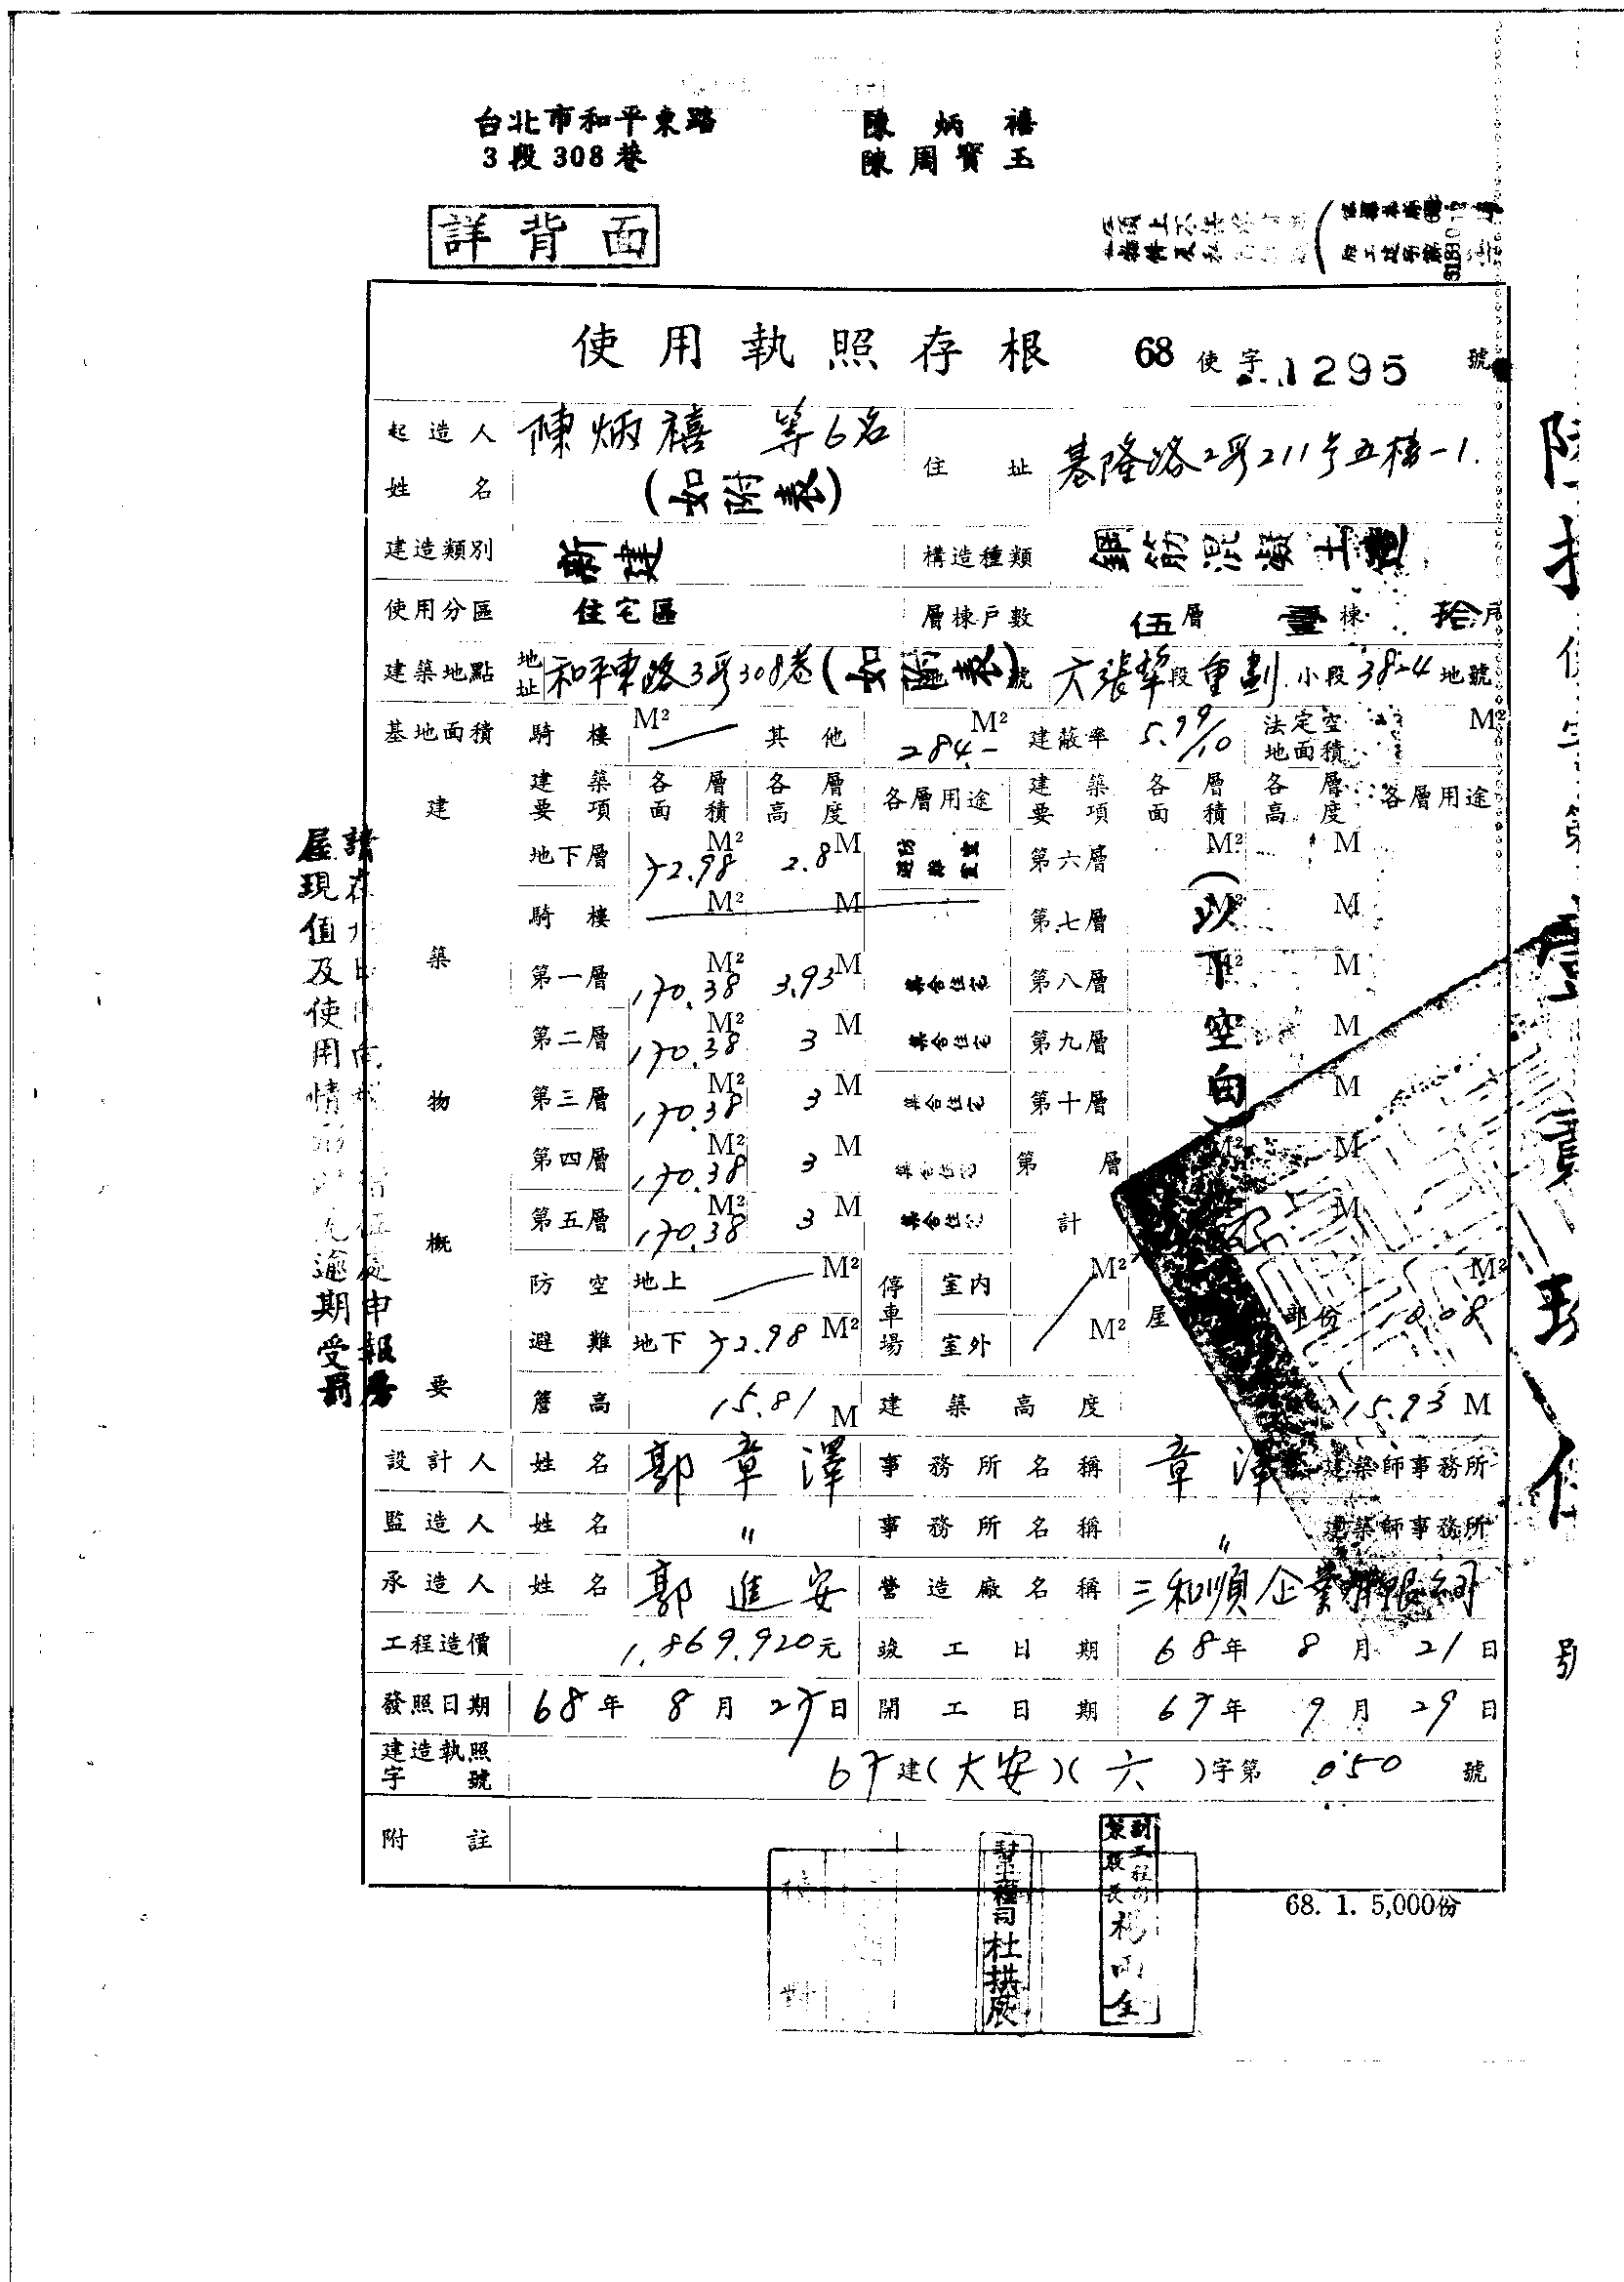 台北市和平東路 陳炳禧
3段308巷 陳周寶玉
詳背面
使用執照存根 68使字1295號
起造人姓名 陳炳禧 等6名 (如附表) 住址 基隆路2段211号五樓-1.
建造類別 新建 構造種類 鋼筋混凝土造
使用分區 住宅區 層棟戶數 伍層 壹棟 拾戶
建築地點 地址 和平東路3段308巷(如附表) 號 六張犂段重劃小段382-4地號
基地面積 騎樓 M² — 其他 284.- M² 建蔽率 5.99/10 法定空地面積 M²
建築物概要
建築要項 各層面積 各層高度 各層用途 建築要項 各層面積 各層高度 各層用途
地下層 72.98 M² 2.8 M 防空避難室 第六層 M² M
騎樓 M² M 第七層 M² M
第一層 170.38 M² 3.93 M 集合住宅 第八層 M² M
第二層 170.38 M² 3 M 集合住宅 第九層 M
第三層 170.38 M² 3 M 集合住宅 第十層 M
第四層 170.38 M² 3 M 集合住宅 第 層 M² M
第五層 170.38 M² 3 M 集合住宅 計 M
(以下空白)
防空避難 地上 — M² 停車場 室內 M² 屋 部份 10.08 M²
地下 72.98 M² 室外 M²
簷高 15.81 M 建築高度 15.93 M
設計人 姓名 郭章澤 事務所名稱 章澤建築師事務所
監造人 姓名 〃 事務所名稱 〃 建築師事務所
承造人 姓名 郭進安 營造廠名稱 三和順企業有限公司
工程造價 1,869,920元 竣工日期 68年8月21日
發照日期 68年8月27日 開工日期 67年9月29日
建造執照字號 67建(大安)(六)字第050號
附註
68. 1. 5,000份
校對
幫工程司 杜拱辰
副工程司